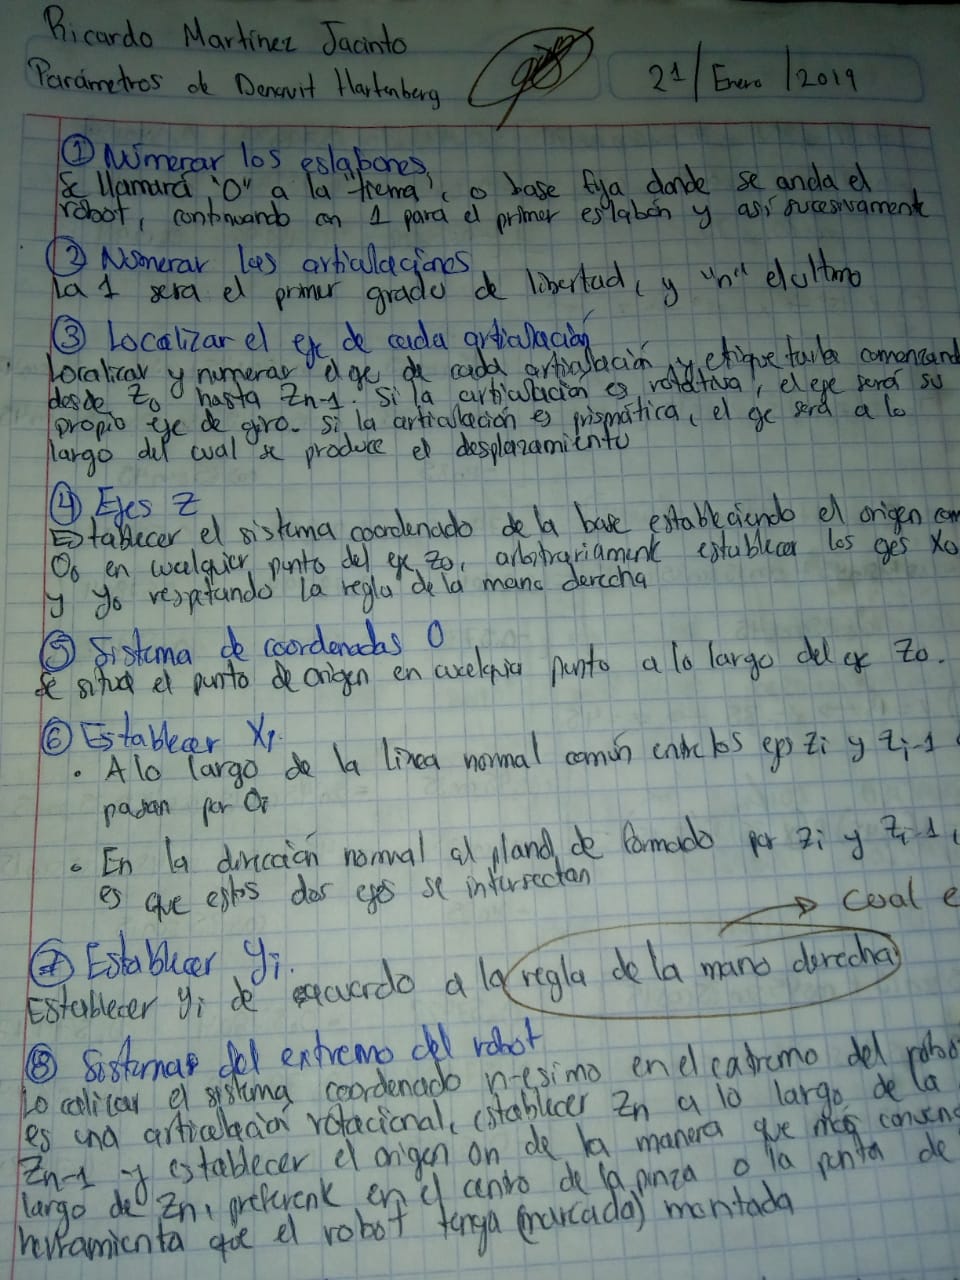 Ricardo Martínez Jacinto
Parámetros de Denavit Hartenberg
21/Enero/2019
① Numerar los eslabones
Se llamará "0" a la "trema", o base fija donde se anda el
robot, continuando con 1 para el primer eslabón y así sucesivamente
② Numerar las articulaciones
La 1 sera el primer grado de libertad, y "n" el ultimo
③ Localizar el eje de cada articulación
Localizar y numerar el eje de cada articulación y etiquetarla comenzand
desde Z0 hasta Zn-1. Si la articulación es rotativa, el eje será su
propio eje de giro. Si la articulación es prismática, el eje será a lo
largo del cual se produce el desplazamiento
④ Ejes Z
Establecer el sistema coordenado de la base estableciendo el origen com
O0 en cualquier punto del eje Z0, arbitrariamente establecer los ejes X0
y Y0 respetando la regla de la mano derecha
⑤ Sistema de coordenadas 0
Se situa el punto de origen en cualquier punto a lo largo del eje Z0.
⑥ Establecer Xi.
• A lo largo de la línea normal común entre los ejes Zi y Zi-1
pasan por Oi
• En la dirección normal al pland de formado por Zi y Zi-1,
es que estos dos ejes se intersectan
cual e
⑦ Establecer Yi.
Establecer Yi de acuerdo a la regla de la mano derecha
⑧ Sistemas del extremo del robot
Localizar el sistema coordenado n-esimo en el extremo del robo
es una articulación rotacional, establecer Zn a lo largo de la
Zn-1 y establecer el origen On de la manera que más conven
largo de Zn, preferente en el centro de la pinza o la punta de
herramienta que el robot tenga (marcada) montada